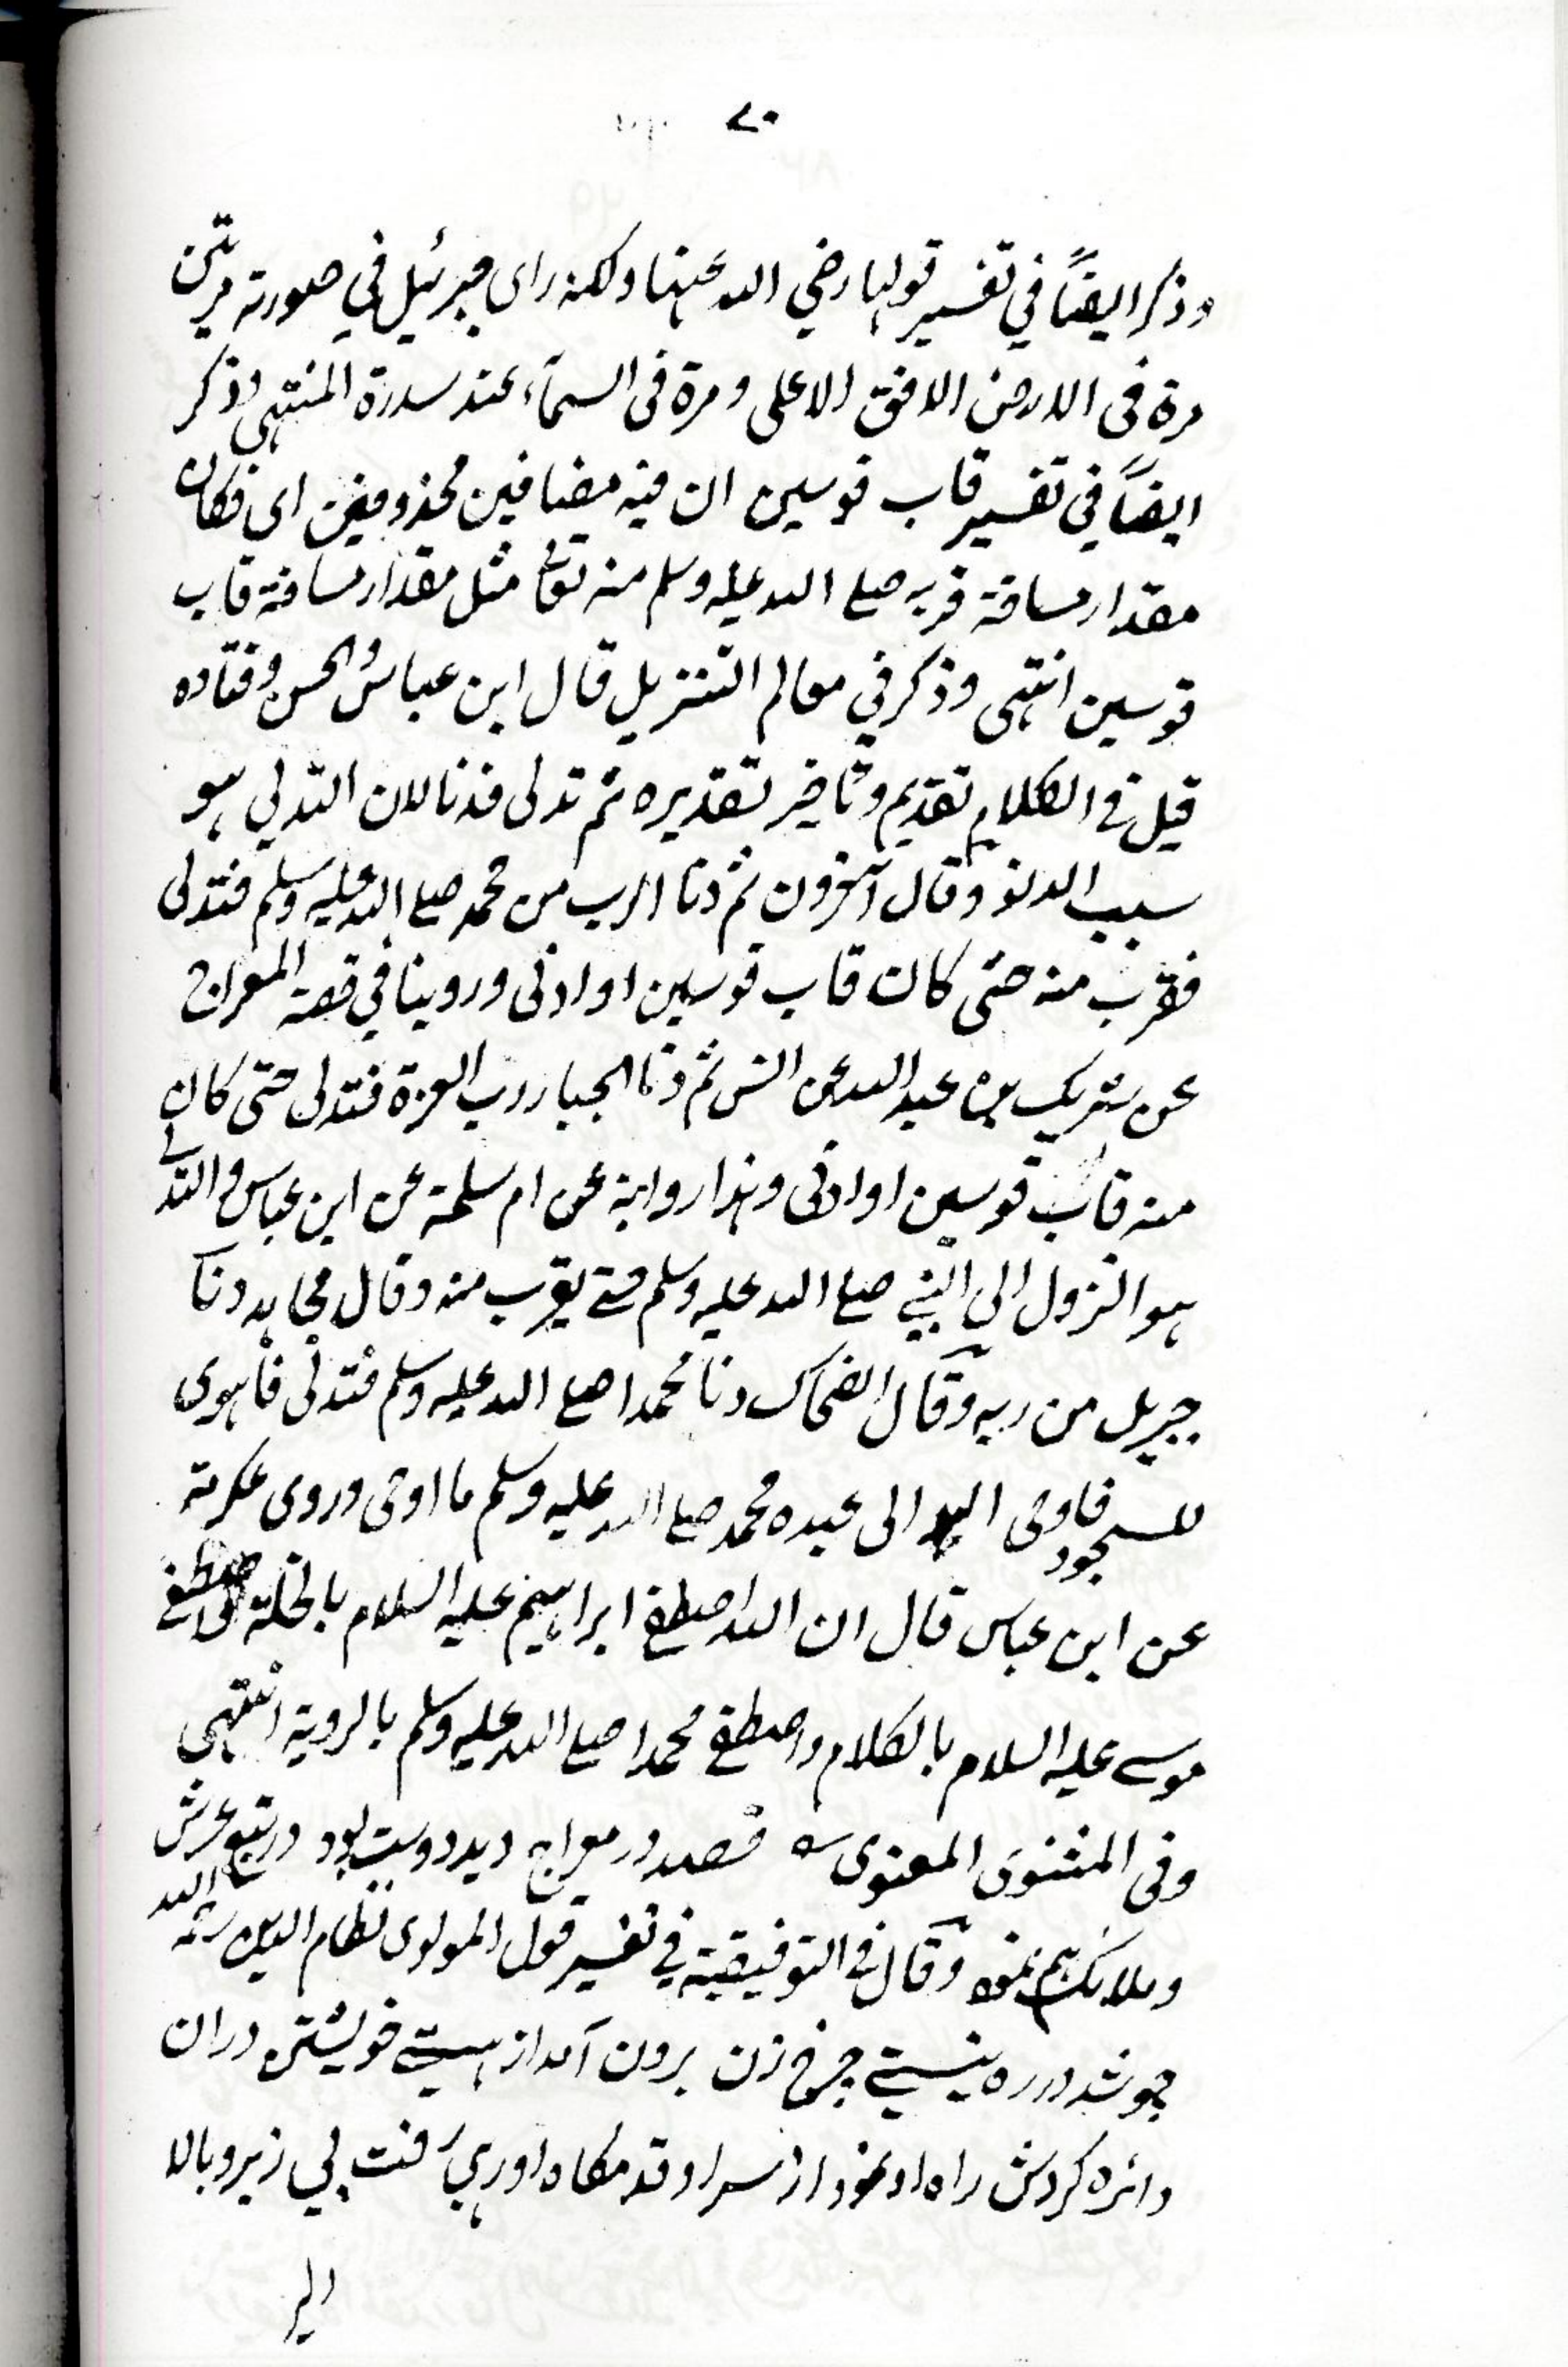 ۷۰
وذكر ايضاً في تفسير قولها رضي الله عنها ولكنه راى جبرئيل في صورته مرتين
مرة فى الارض الافق الاعلى ومرة فى السمآء عند سدرة المنتهى وذكر
ايضاً في تفسير قاب قوسين ان فيه مضافين محذوفين اى فكان
مقدار مسافة قربه صلے الله عليه وسلم منه تعالى مثل مقدار مسافة قاب
قوسين انتهى وذكر في معالم التنزيل قال ابن عباس والحسن وقتاده
قيل فے الكلام تقديم وتاخير تقديره ثم تدلى فدنا لان التدلي هو
سبب الدنو وقال آخرون ثم دنا الرب من محمد صلے الله عليه وسلم فتدلى
فقرب منه حتى كان قاب قوسين او ادنى وروينا في قصة المعراج
عن شريك بن عبد الله عن انس ثم دنا الجبار رب العزة فتدلى حتى كان
منه قاب قوسين او ادنى وهذا رواية عن ام سلمة عن ابن عباس والتدلے
هو النزول الى النبي صلے الله عليه وسلم حتے يقرب منه وقال مجاهد دنا
جبريل من ربه وقال الضحاك دنا محمدا صلے الله عليه وسلم فتدلى فاهوى
للسجود فاوحى الله الى عبده محمد صلے الله عليه وسلم ما اوحى وروى عكرمة
عن ابن عباس قال ان الله اصطفے ابراهيم عليه السلام بالخلة واصطفے
موسے عليه السلام بالكلام واصطفے محمدا صلے الله عليه وسلم بالروية انتهى
وفى المثنوى المعنوى ؎ قصد در معراج ديد دوست بود در تبع عرش
وملائک هم نمود وقال فے التوفيقية في تفسير قول المولوى نظام الدين رحمه الله
چو شد در ره نيستے چرخ زن برون آمد از هستے خويشتن دران
دائره گردش راه او نمود از سر او قدمگاه او رهي رفت بي زير وبالا